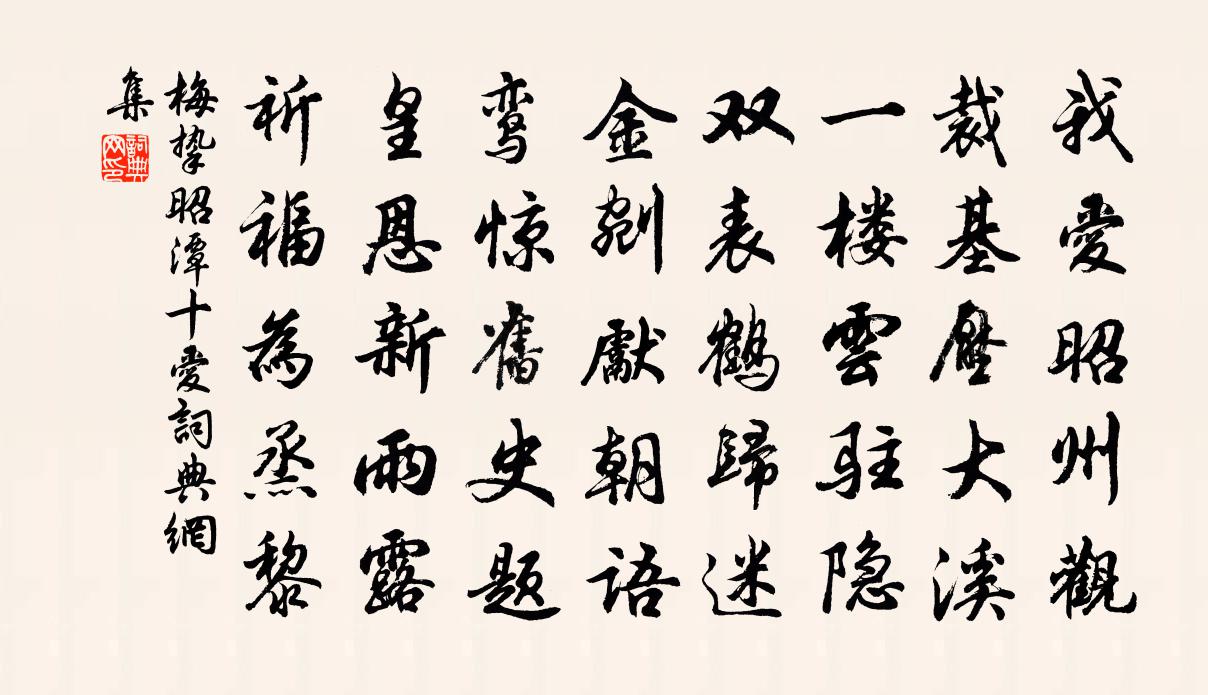 我愛昭州觀
裁基壓大溪
一楼雲駐隐
双表鶴歸迷
金剜獻朝語
鸾惊舊史题
皇恩新雨露
祈福為烝黎
梅挚昭潭十愛詞典網
集
詞典网印